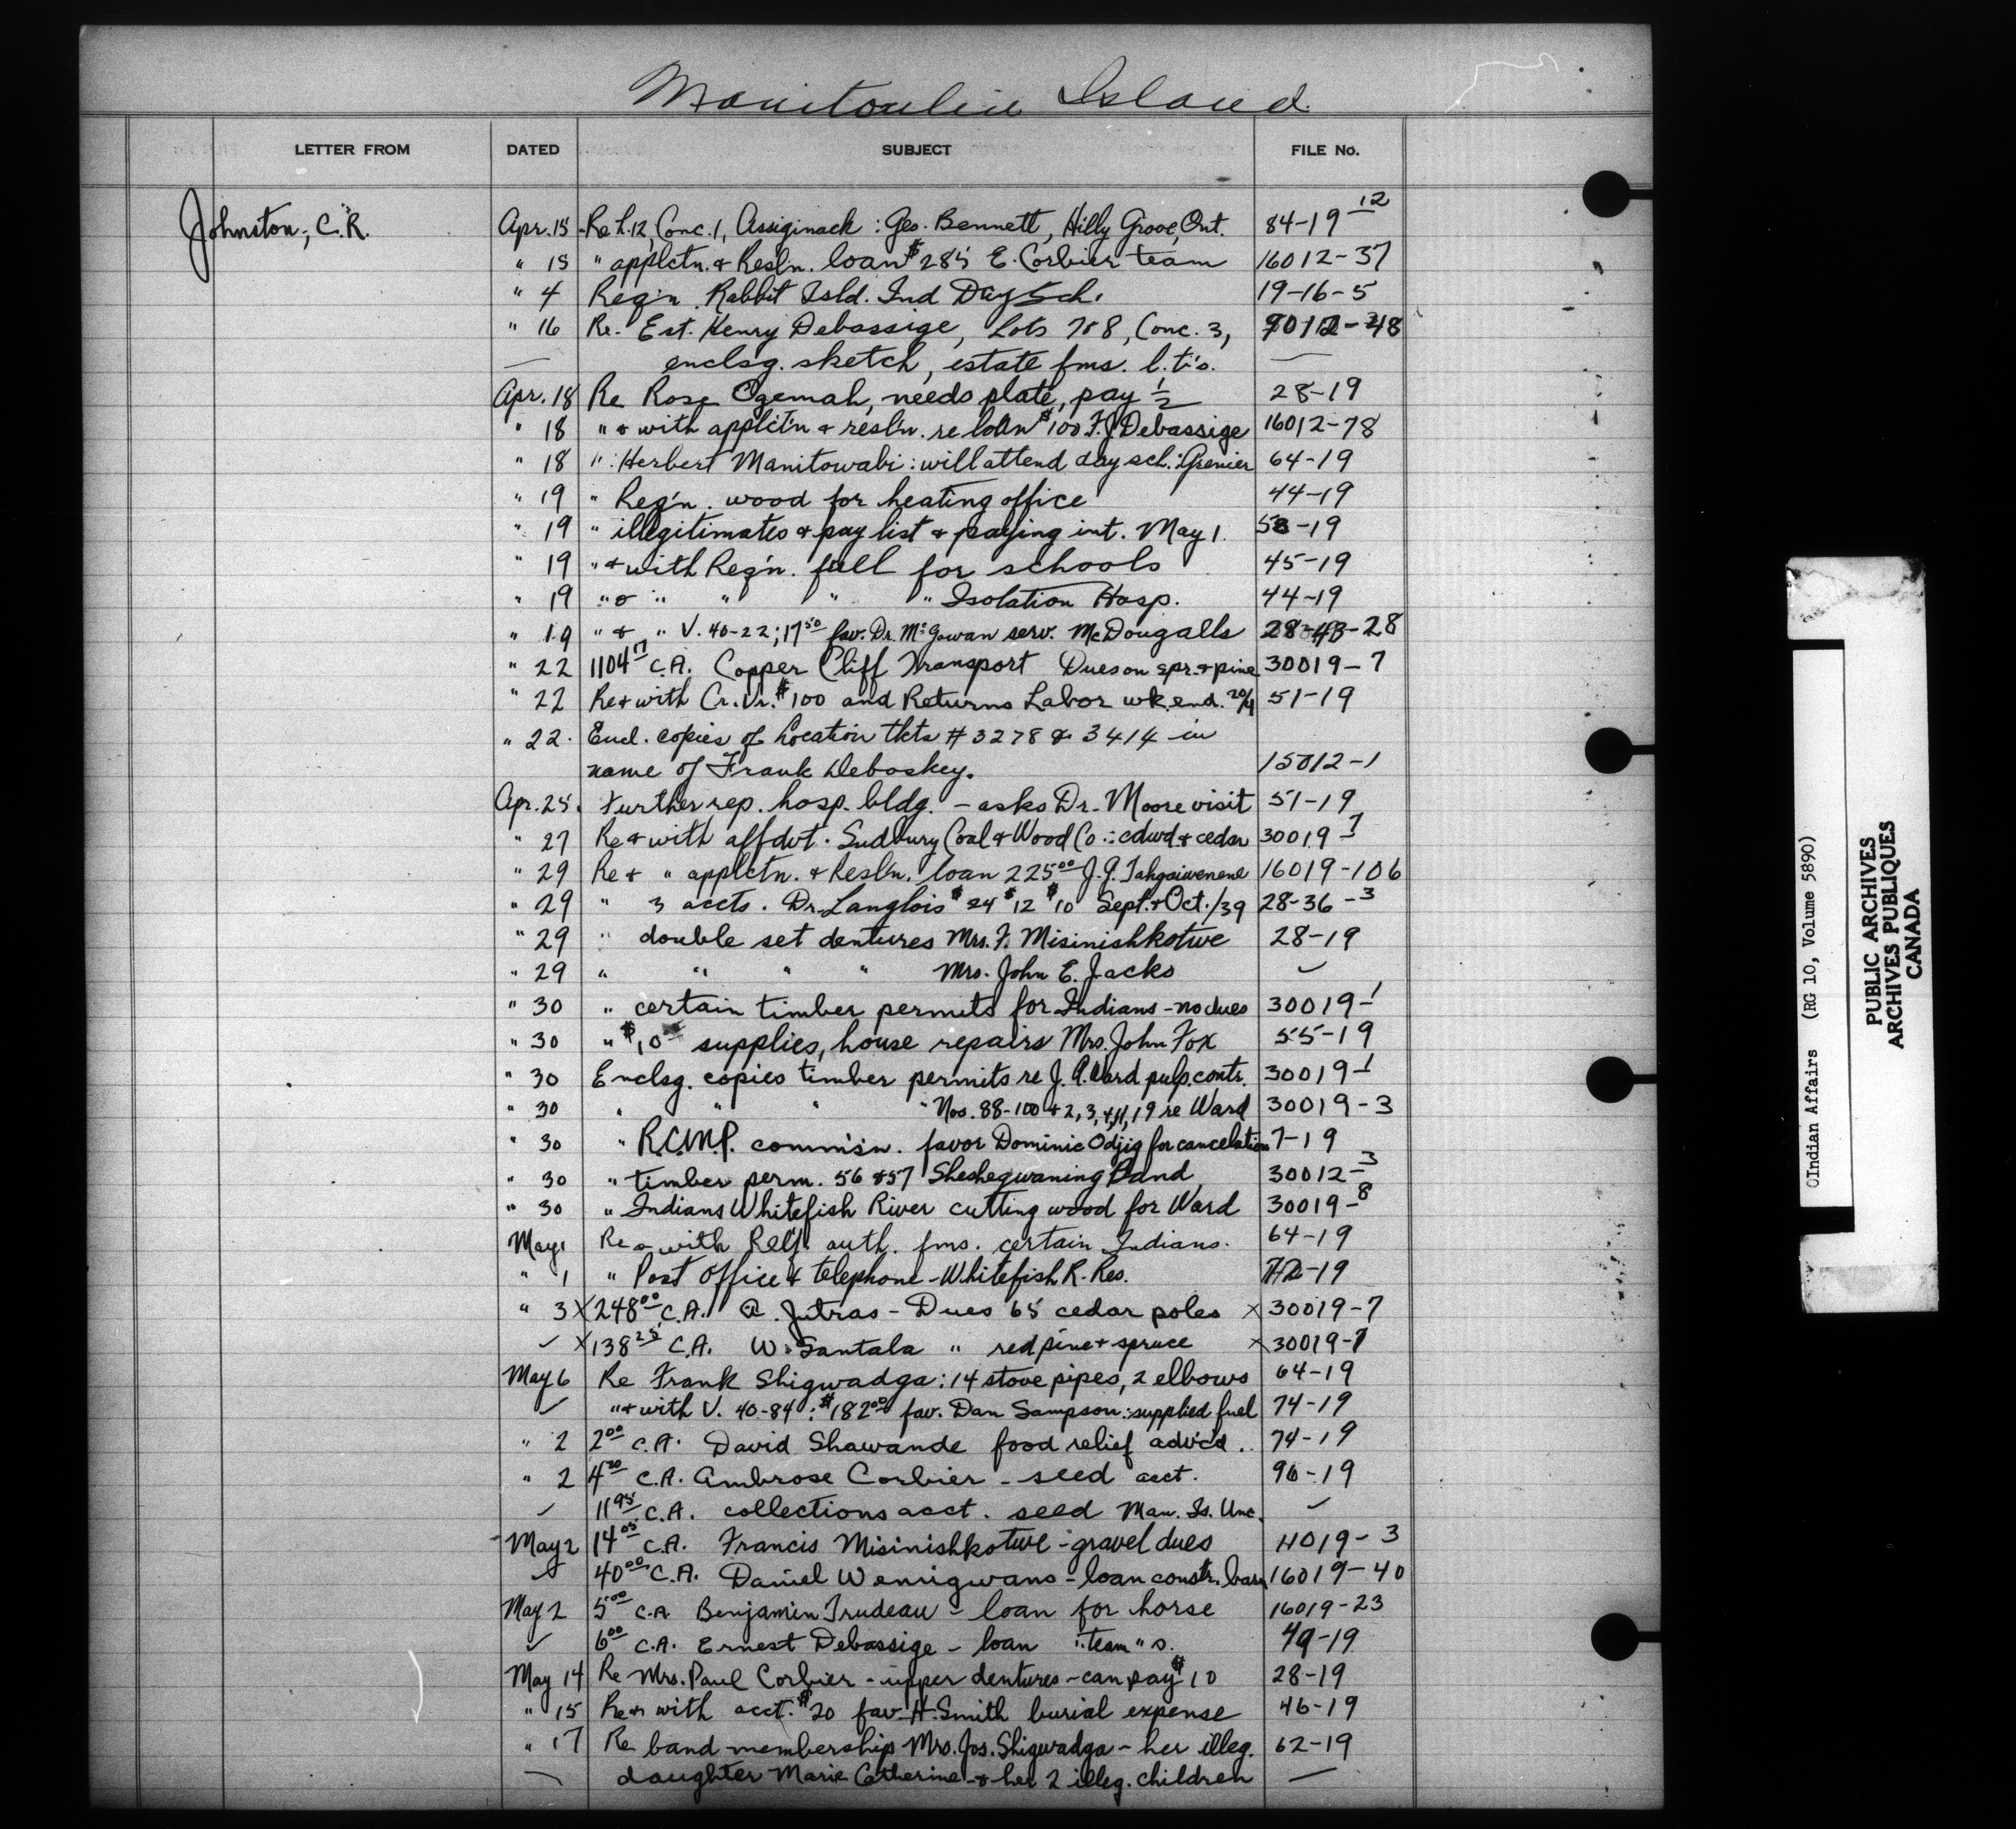 Manitoulin Island.
LETTER FROM DATED SUBJECT FILE No.
Johnston, C.R. Apr. 15 Re L.12, Conc. 1, Assiginack: Geo. Bennett, Hilly Grove, Ont. 84-19-12
" 15 " applctn. & Resln. loan $285 E. Corbier team 16012-37
" 4 Req'n Rabbit Isld. Ind Day Sch. 19-16-5
" 16 Re. Est. Henry Debassige, Lots 7&8, Conc. 3,
— enclsg. sketch, estate fms. l.t's. —
Apr. 18 Re Rose Ogemah, needs plate, pay ½ 28-19
" 18 "& with applct'n & resl'n. re loan $100 F.J. Debassige 16012-78
" 18 ": Herbert Manitowabi: will attend day sch.: Grenier 64-19
" 19 " Req'n. wood for heating office 44-19
" 19 " illegitimates & pay list & paying int. May 1. 58-19
" 19 "& with Req'n. fuel for schools 45-19
" 19 "& " " " " Isolation Hosp. 44-19
" 19 "& " V. 40-22; 17.50 fav. Dr. McGowan serv. McDougalls 28-28
" 22 1104.17 C.A. Copper Cliff Transport Dues on spr. & pine 30019-7
" 22 Re & with Cr. Vr. $100 and Returns Labor wk. end. 20/4 51-19
" 22. Encl. copies of Location tkts # 3278 & 3414 in
name of Frank Deboskey. 15012-1
Apr. 25. Further rep. hosp. bldg. - asks Dr. Moore visit 51-19
" 27 Re & with affdvt. Sudbury Coal & Wood Co.: cdwd & cedar 30019-7
" 29 Re & " applctn. & Resl'n. loan 225.00 J.J. Tahgaiwenene 16019-106
" 29 " 3 accts. Dr. Langlois $24 $12 $10 Sept. & Oct./39 28-36-3
" 29 " double set dentures Mrs. F. Misinishkotwe 28-19
" 29 " " " " Mrs. John E. Jacko ✓
" 30 " certain timber permits for Indians - no dues 30019-1
" 30 " $10 supplies, house repairs Mrs. John Fox 55-19
" 30 Enclsg. copies timber permits re J. A. Ward pulp. contr. 30019-1
" 30 " " " " Nos. 88-100 & 2, 3, 4, 11, 19 re Ward 30019-3
" 30 " R.C.M.P. comm'sn. favor Dominic Odjig for cancelation 7-19
" 30 " timber perm. 56 & 57 Sheshegwaning Band 30012-3
" 30 " Indians Whitefish River cutting wood for Ward 30019-8
May 1 Re & with Relf. auth. fms. certain Indians. 64-19
" 1 " Post Office & telephone - Whitefish R. Res. 72-19
" 3 X 248.00 C.A. A. Jutras - Dues 65 cedar poles X 30019-7
✓ X 138.25 C.A. W. Santala " red pine & spruce X 30019-7
May 6 Re Frank Shigwadga: 14 stove pipes, 2 elbows 64-19
✓ "& with V. 40-84: $182.00 fav. Dan Sampson: supplied fuel 74-19
" 2 2.00 C.A. David Shawande food relief advc'd. 74-19
" 2 4.20 C.A. Ambrose Corbier - seed acct. 96-19
✓ 11.95 C.A. collections acct. seed Man. Is. Unc. ✓
May 2 14.05 C.A. Francis Misinishkotwe - gravel dues 4019-3
✓ 40.00 C.A. Daniel Wemigwans - loan constr. barn 16019-40
May 2 5.00 C.A. Benjamin Trudeau - loan for horse 16019-23
✓ 6.00 C.A. Ernest Debassige - loan " team " s. 49-19
May 14 Re Mrs. Paul Corbier - upper dentures - can pay $10 28-19
" 15 Re & with acct. $20 fav. H. Smith burial expense 46-19
" 17 Re band membership Mrs. Jos. Shigwadga - her illeg. 62-19
— daughter Marie Catherine & her 2 illeg. children —
OIndian Affairs (RG 10, Volume 5890)
PUBLIC ARCHIVES
ARCHIVES PUBLIQUES
CANADA